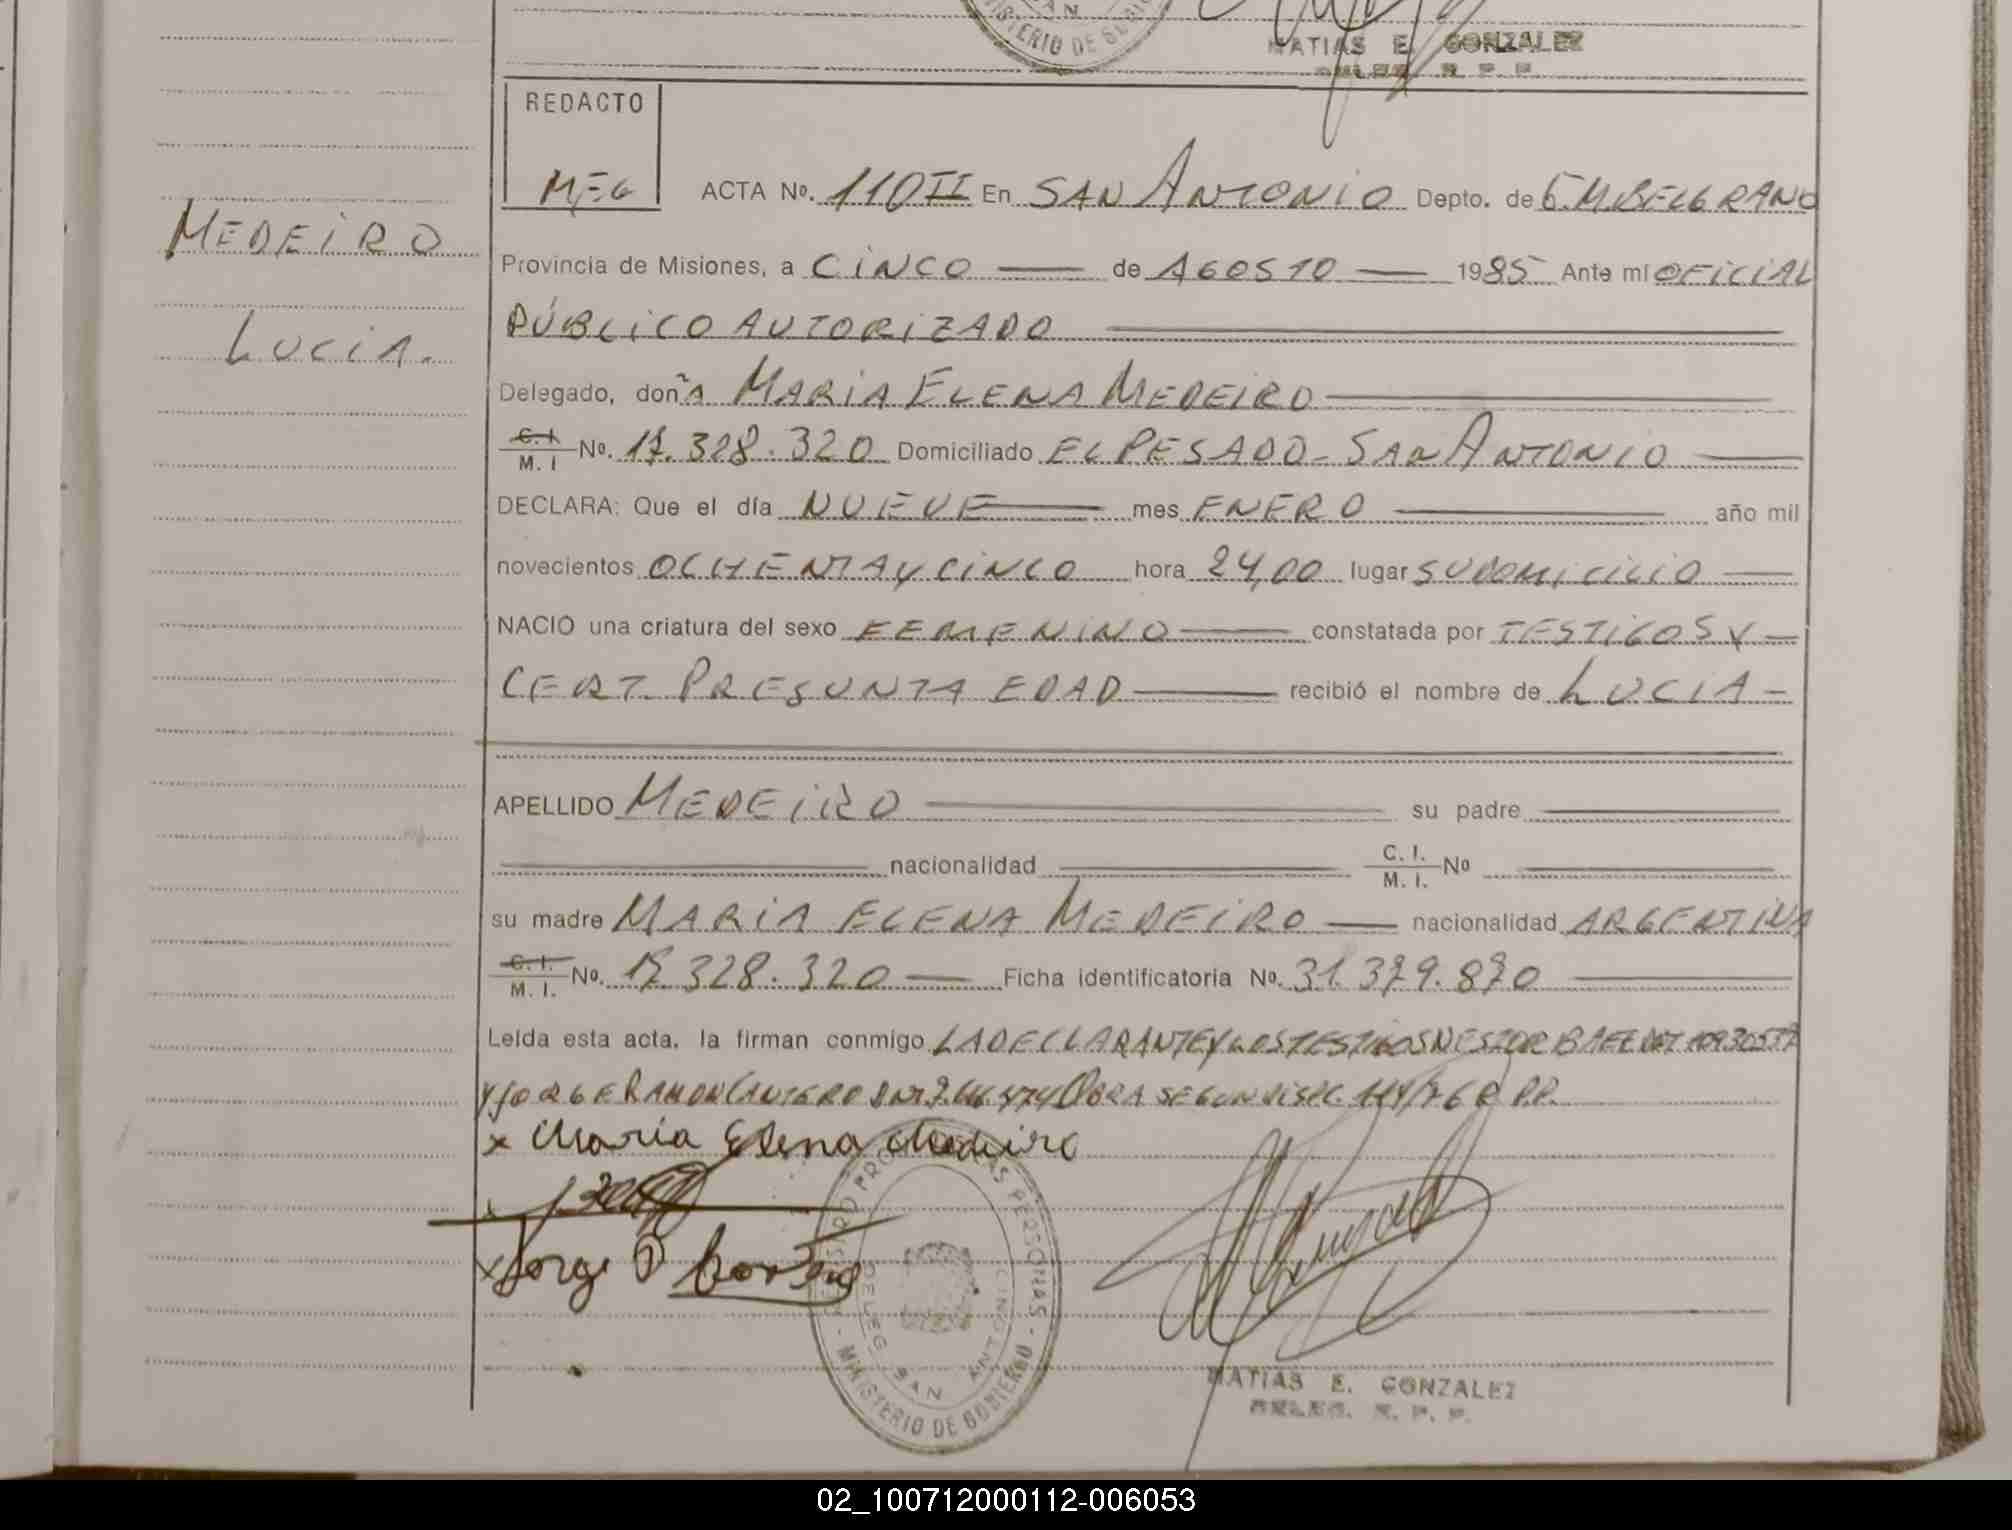 MINISTERIO DE GOBIERNO
SAN
MATIAS E. GONZALEZ
DELEG. R. P. P.
REDACTO
MEG
ACTA Nº. 110 II En SAN ANTONIO Depto. de G. M. BELGRANO
MEDEIRO
Provincia de Misiones, a CINCO — de AGOSTO — 1985 Ante mí OFICIAL
PÚBLICO AUTORIZADO
LUCIA.
Delegado, doñA MARIA ELENA MEDEIRO
C. I. M. I Nº. 17.328.320 Domiciliado EL PESADO - SAN ANTONIO
DECLARA: Que el día NUEVE mes ENERO año mil
novecientos OCHENTA Y CINCO hora 24,00 lugar SU DOMICILIO
NACIO una criatura del sexo FEMENINO constatada por TESTIGOS Y
CERT. PRESUNTA EDAD recibió el nombre de LUCIA
APELLIDO MEDEIRO su padre
nacionalidad C. I. M. I. Nº
su madre MARIA ELENA MEDEIRO nacionalidad ARGENTINA
C. I. M. I. Nº. 17.328.320 Ficha identificatoria Nº. 31.379.870
Leída esta acta, la firman conmigo LA DECLARANTE Y LOS TESTIGOS NESTOR
Y JORGE RAMON OBRA SEGUN R.P.P.
x Maria Elena Medeiro
x
x Jorge
REGISTRO PROV. DE LAS PERSONAS - MINISTERIO DE GOBIERNO
DELEG. SAN ANTONIO
MATIAS E. GONZALEZ
DELEG. R. P. P.
02_100712000112-006053